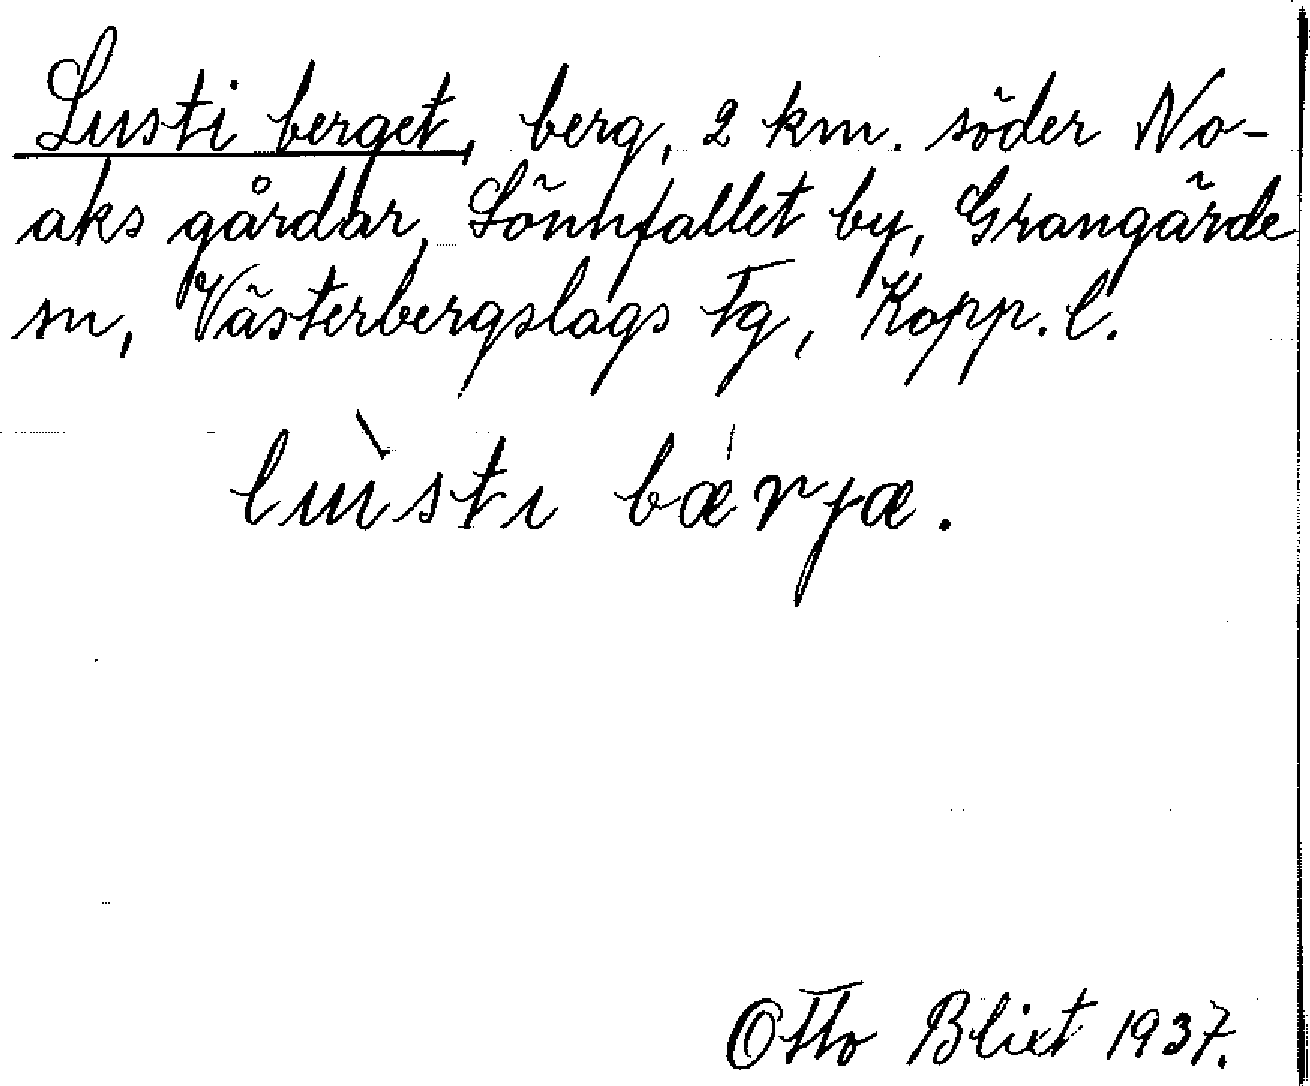 Lusti berget, berg, 2 km. söder No-
aks gårdar, Lönnfallet by, Grangärde
sn, Västerbergslags Fg, Kopp. l.
lùsti bǽrjæ.
Otto Blixt 1937.